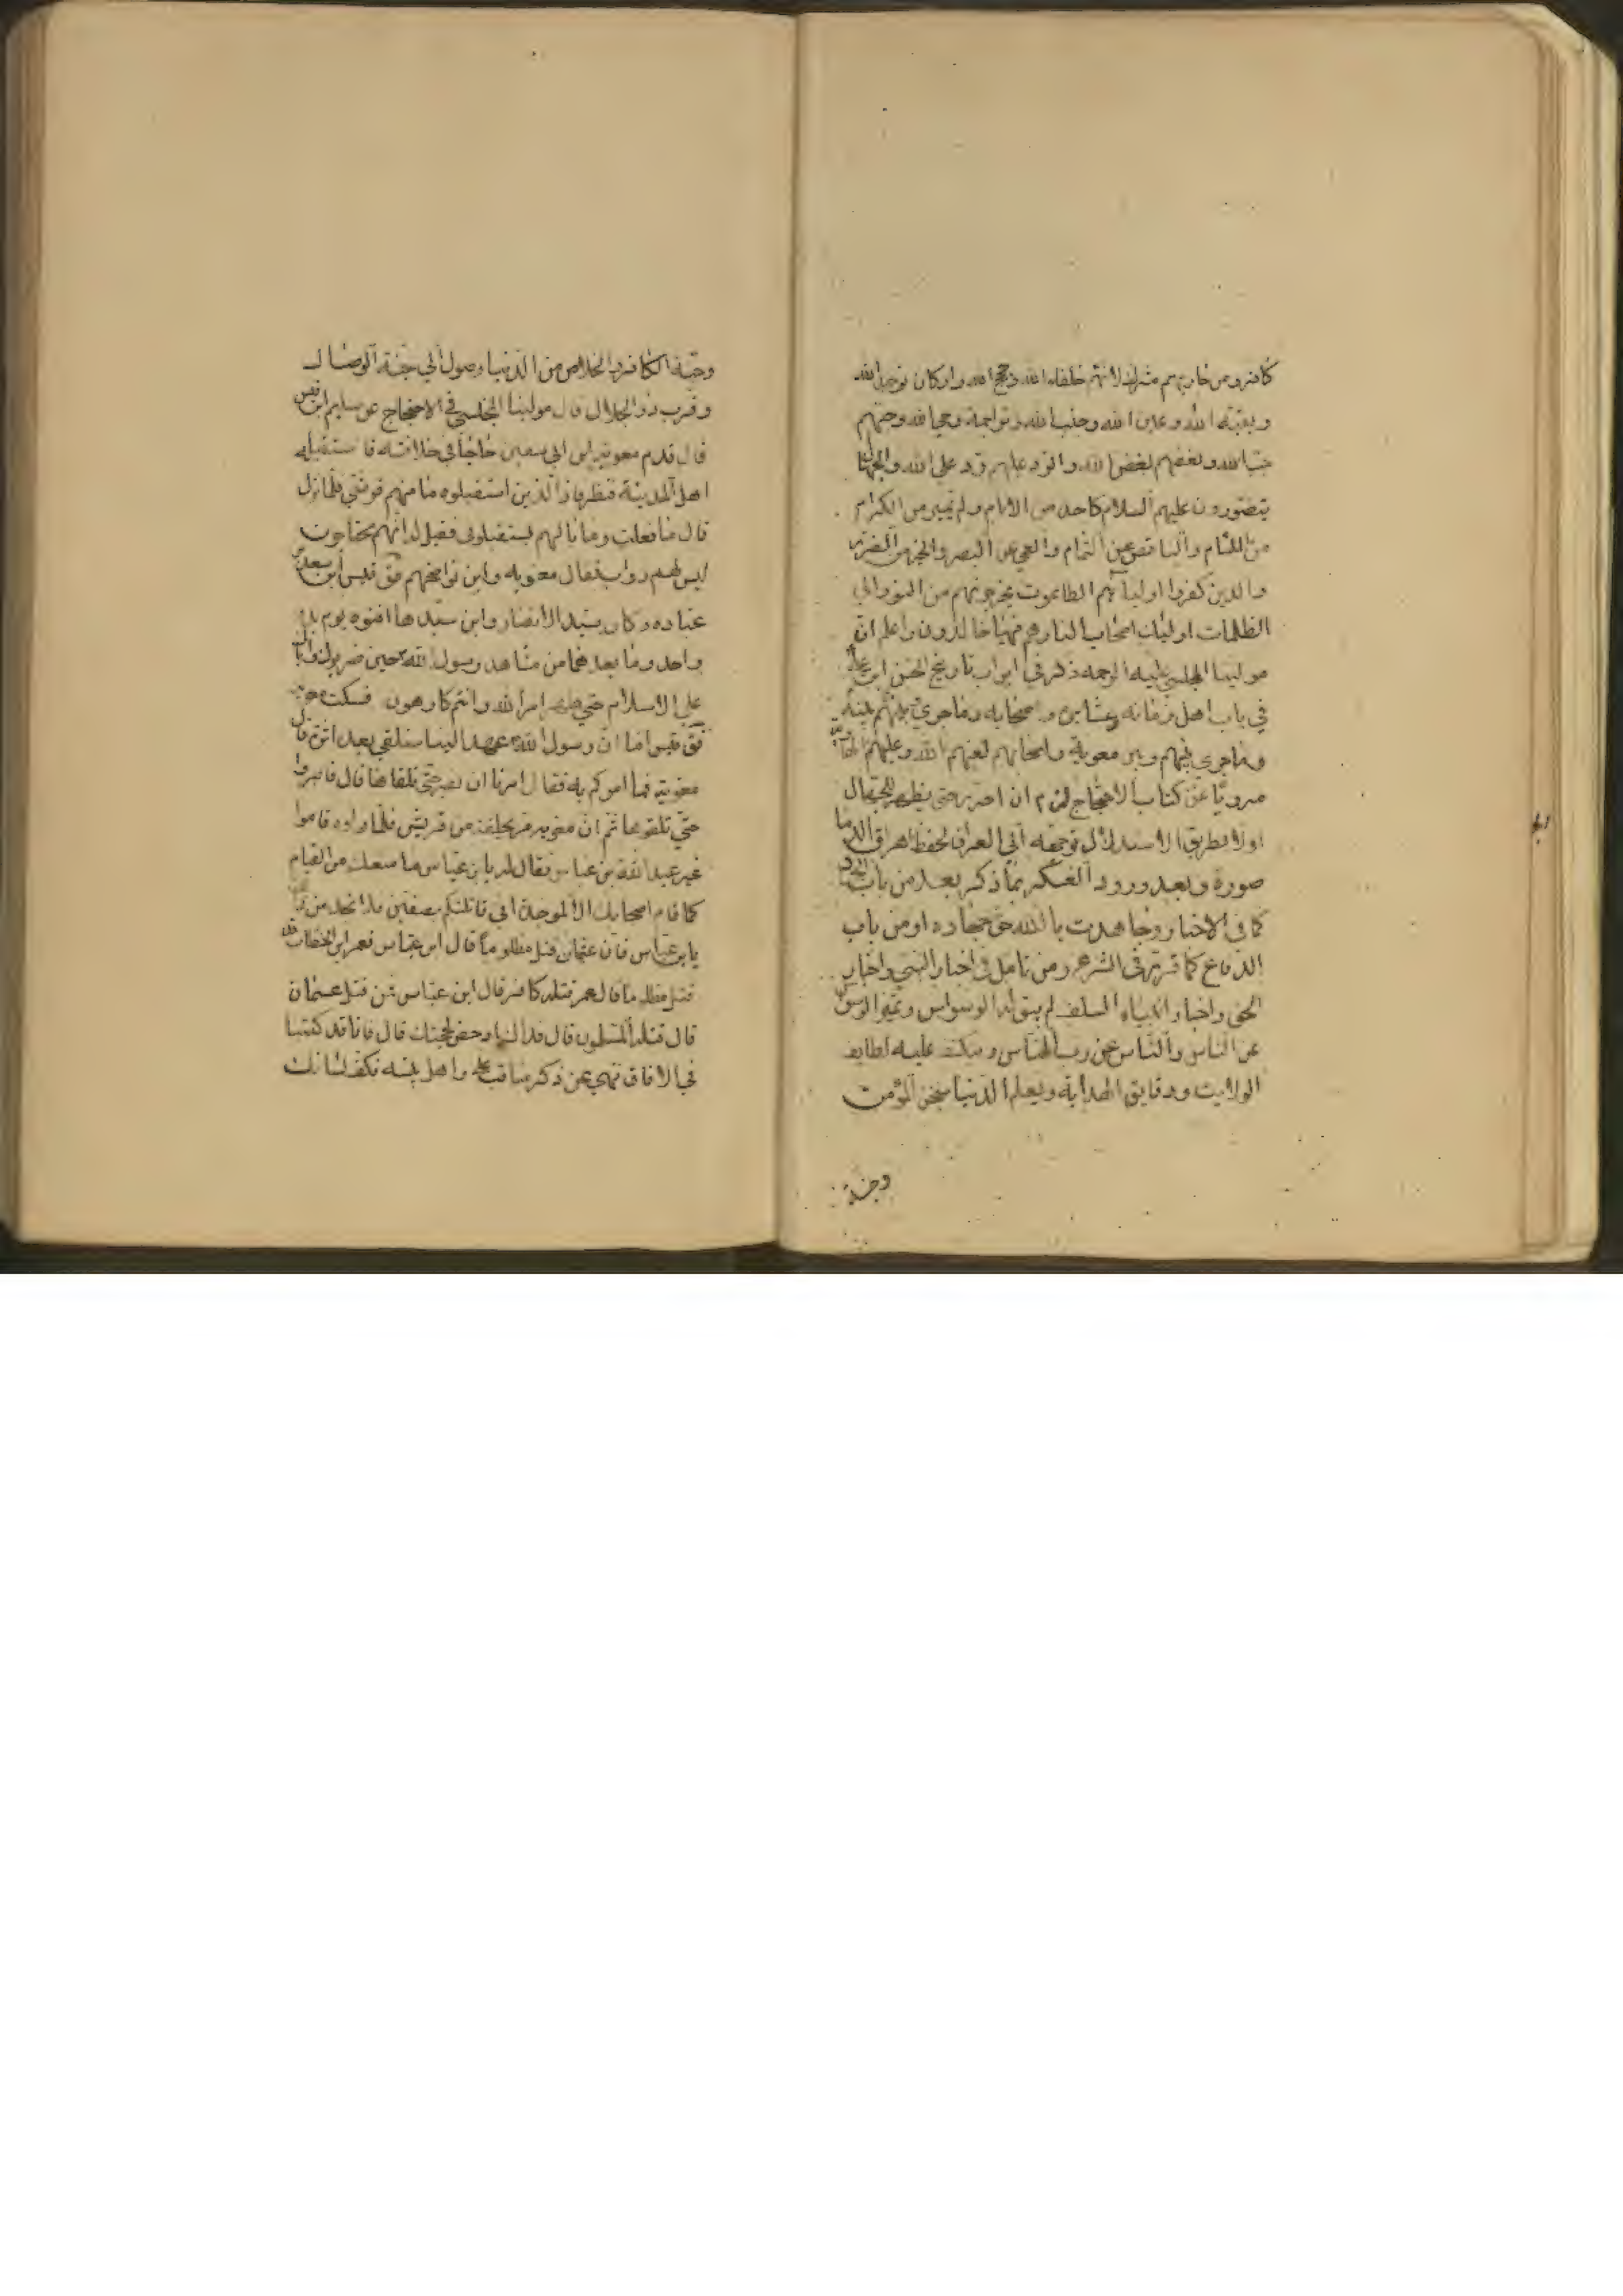 كافر ومن حاربهم مشرك لانهم خلفاء الله وحجج الله واركان توحيد الله
وبقية الله وعين الله وجنب الله وتراجمة وحي الله وحبهم
حب الله وبغضهم بغض الله والرد عليهم رد على الله والجهال
يتصورون عليهم السلام كاحد من الانام ولم تميز من الكرام
من اللئام والناقص عن التمام والعمى عن البصر والخير من الضرر
والذين كفروا اولياؤهم الطاغوت يخرجونهم من النور الى
الظلمات اولئك اصحاب النار هم فيها خالدون واعلم ان
مولينا المجلسي عليه الرحمة ذكر في ابواب تاريخ الحسن ابن علي
في باب اهل زمانه وعشايره واصحابه وماجرى بينهم بينه
وماجرى بينهم وبين معوية واصحابهم لعنهم الله وعليهم
مرويا عن كتاب الاحتجاج ان احترز حتى يظهر للجهال
اولا بطريق الاستدلال توجهه الى العراق لحفظ اهراق الدما
صورة وبعد ورود العسكر بما ذكر بعد من باب الجهاد
كما في الاخبار وجاهدت بالله حق جهاده او من باب
الدفاع كما قرر في الشرع ومن تامل في اخبار النبي واخبار
الحق واخبار انبياء السلف لم يبق له الوسواس ويميز الوسواس
عن الناس والناس عن رب الناس وينكشف عليه لطايف
الولايت ودقايق الهداية ويعلم الدنيا سجن المؤمن
وجنة
وجنة الكافر والخلاص من الدنيا وصول الى جنة الوصال
وقرب ذو الجلال قال مولينا المجلسي في الاحتجاج عن سليم ابن قيس
قال قدم معوية بن ابي سفين حاجا في خلافته فاستقبله
اهل المدينة فنظر فاذا الذين استقبلوه ما منهم قرشي فلما نزل
قال ما فعلت وما بالهم لم يستقبلوني فقيل له انهم محتاجون
ليس لهم دواب فقال معوية واين نواضحهم فق قيس ابن سعد بن
عباده وكان سيد الانصار وابن سيدها افنوه يوم بدر
واحد وما بعدهما من مشاهد رسول الله حين ضربوك واباك
على الاسلام حتى ظهر امر الله وانتم كارهون فسكت معوية
فق قيس اما ان رسول الله عهد الينا سنلقى بعده اثرة قال
معوية فما امركم به فقال امرنا ان نصبر حتى نلقاه قال فاصبروا
حتى تلقوه ثم ان معوية مر بحلقة من قريش فلما راوه قاموا
غير عبد الله بن عباس فقال له يابن عباس ما منعك من القيام
كما قام اصحابك الا لموجدة اني قاتلتكم بصفين فلا تجد من ذلك
يابن عباس فان عثمان قتل مظلوما قال ابن عباس فعمر ابن الخطاب قد
قتل مظلوما قال عمر قتله كافر قال ابن عباس فمن قتل عثمان
قال قتله المسلمون قال فذاك ادحض لحجتك قال فانا قد كتبنا
في الافاق ننهى عن ذكر مناقب علي واهل بيته فكف لسانك